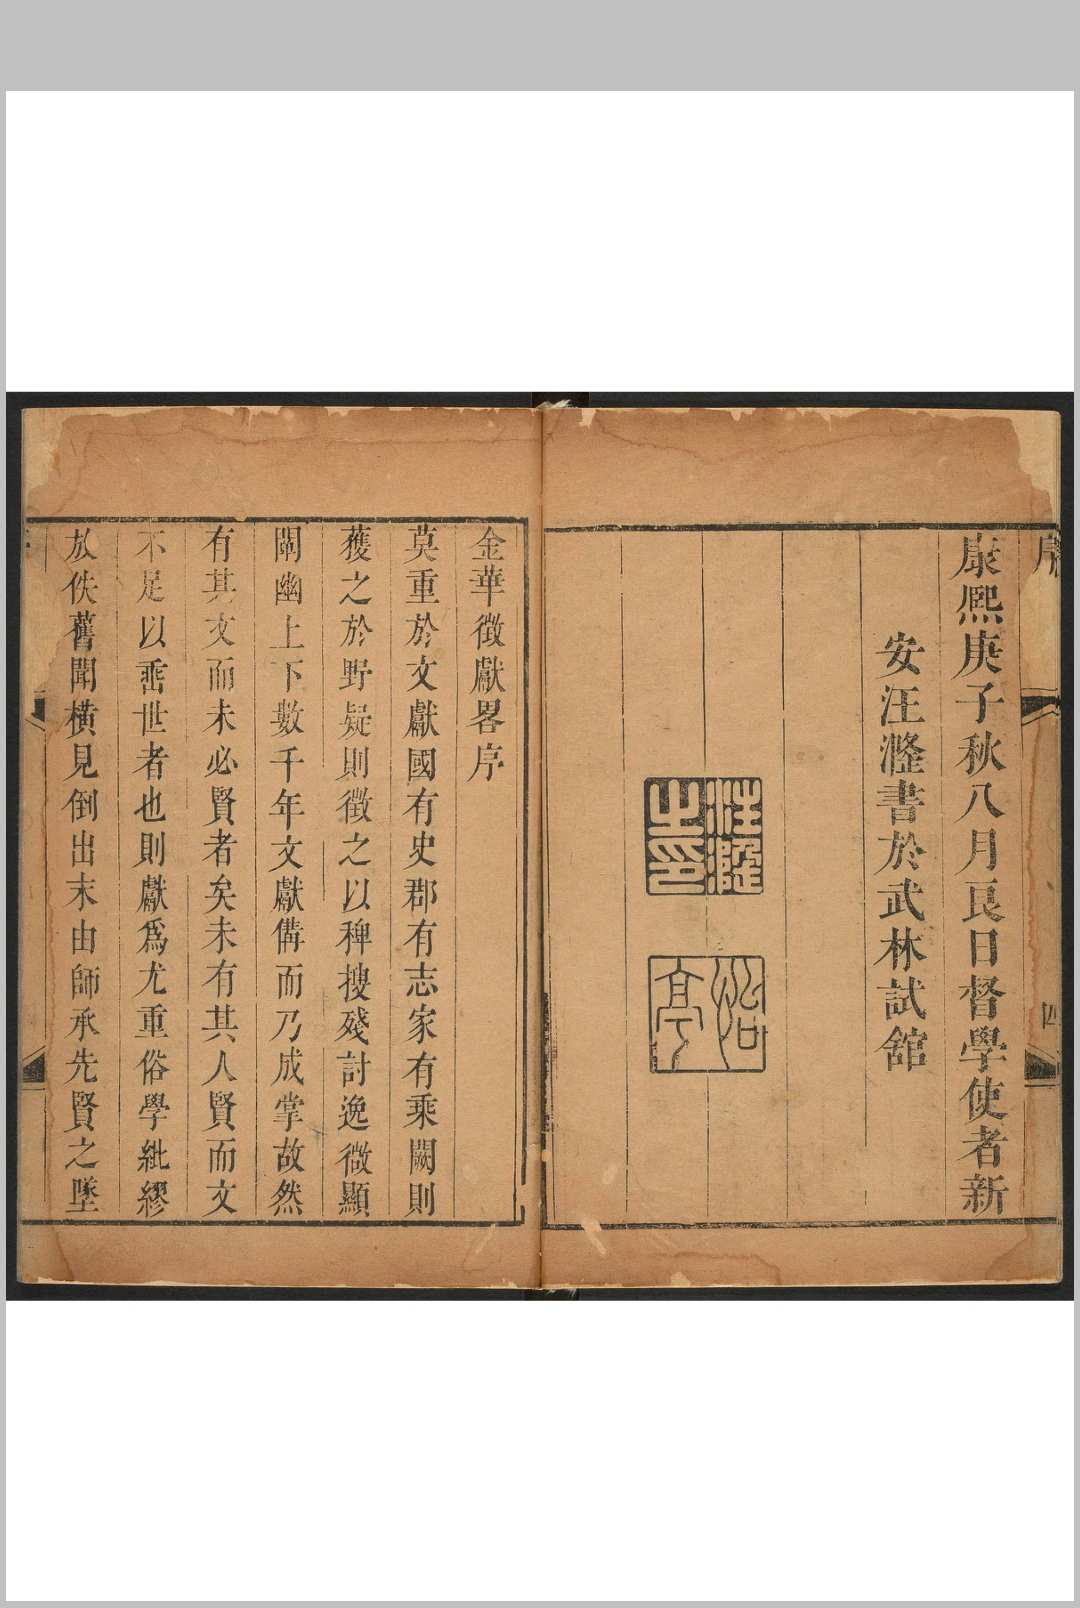 序
四
康熙庚子秋八月良日督學使者新
安汪漋書於武林試舘
汪漋之印
泊亭
金華徵獻畧序
莫重於文獻國有史郡有志家有乘闕則
獲之於野疑則徵之以稗搜殘討逸微顯
闡幽上下數千年文獻備而乃成掌故然
有其文而未必賢者矣未有其人賢而文
不足以垂世者也則獻爲尤重俗學紕繆
放佚舊聞橫見倒出末由師承先賢之墜